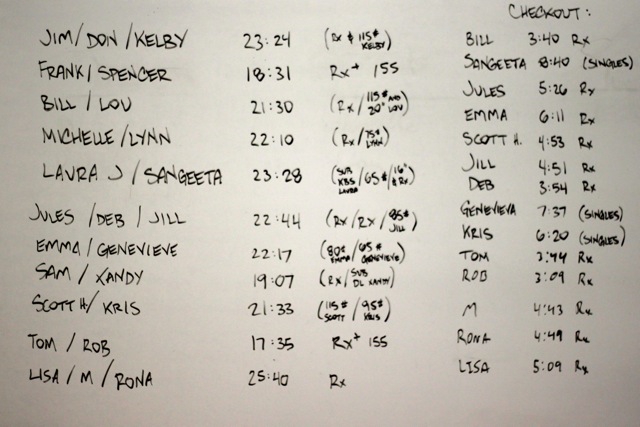 JIM/DON/KELBY 23:24 (Rx & 115# KELBY)
FRANK/SPENCER 18:31 Rx+ 155
BILL/LOU 21:30 (Rx/115# AND 20" LOU)
MICHELLE/LYNN 22:10 (Rx/75# LYNN)
LAURA J/SANGEETA 23:28 (SUB KBS LAURA/65#/16" & Rx)
JULES/DEB/JILL 22:44 (Rx/Rx/85# JILL)
EMMA/GENEVIEVE 22:17 (80# EMMA/65# GENEVIEVE)
SAM/XANDY 19:07 (Rx/SUB DL XANDY)
SCOTT H/KRIS 21:33 (115# SCOTT/95# KRIS)
TOM/ROB 17:35 Rx+ 155
LISA/M/RONA 25:40 Rx
CHECKOUT:
BILL 3:40 Rx
SANGEETA 8:40 (SINGLES)
JULES 5:26 Rx
EMMA 6:11 Rx
SCOTT H. 4:53 Rx
JILL 4:51 Rx
DEB 3:54 Rx
GENEVIEVA 7:37 (SINGLES)
KRIS 6:20 (SINGLES)
TOM 3:44 Rx
ROB 3:09 Rx
M 4:43 Rx
RONA 4:49 Rx
LISA 5:09 Rx